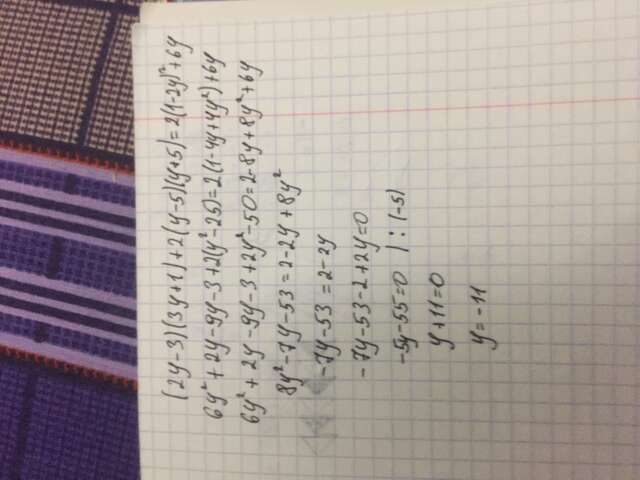 (2y-3)(3y+1)+2(y-5)(y+5)=2(1-2y)²+6y
6y²+2y-9y-3+2(y²-25)=2(1-4y+4y²)+6y
6y²+2y-9y-3+2y²-50=2-8y+8y²+6y
8y²-7y-53=2-2y+8y²
-7y-53=2-2y
-7y-53-2+2y=0
-5y-55=0 |:(-5)
y+11=0
y=-11